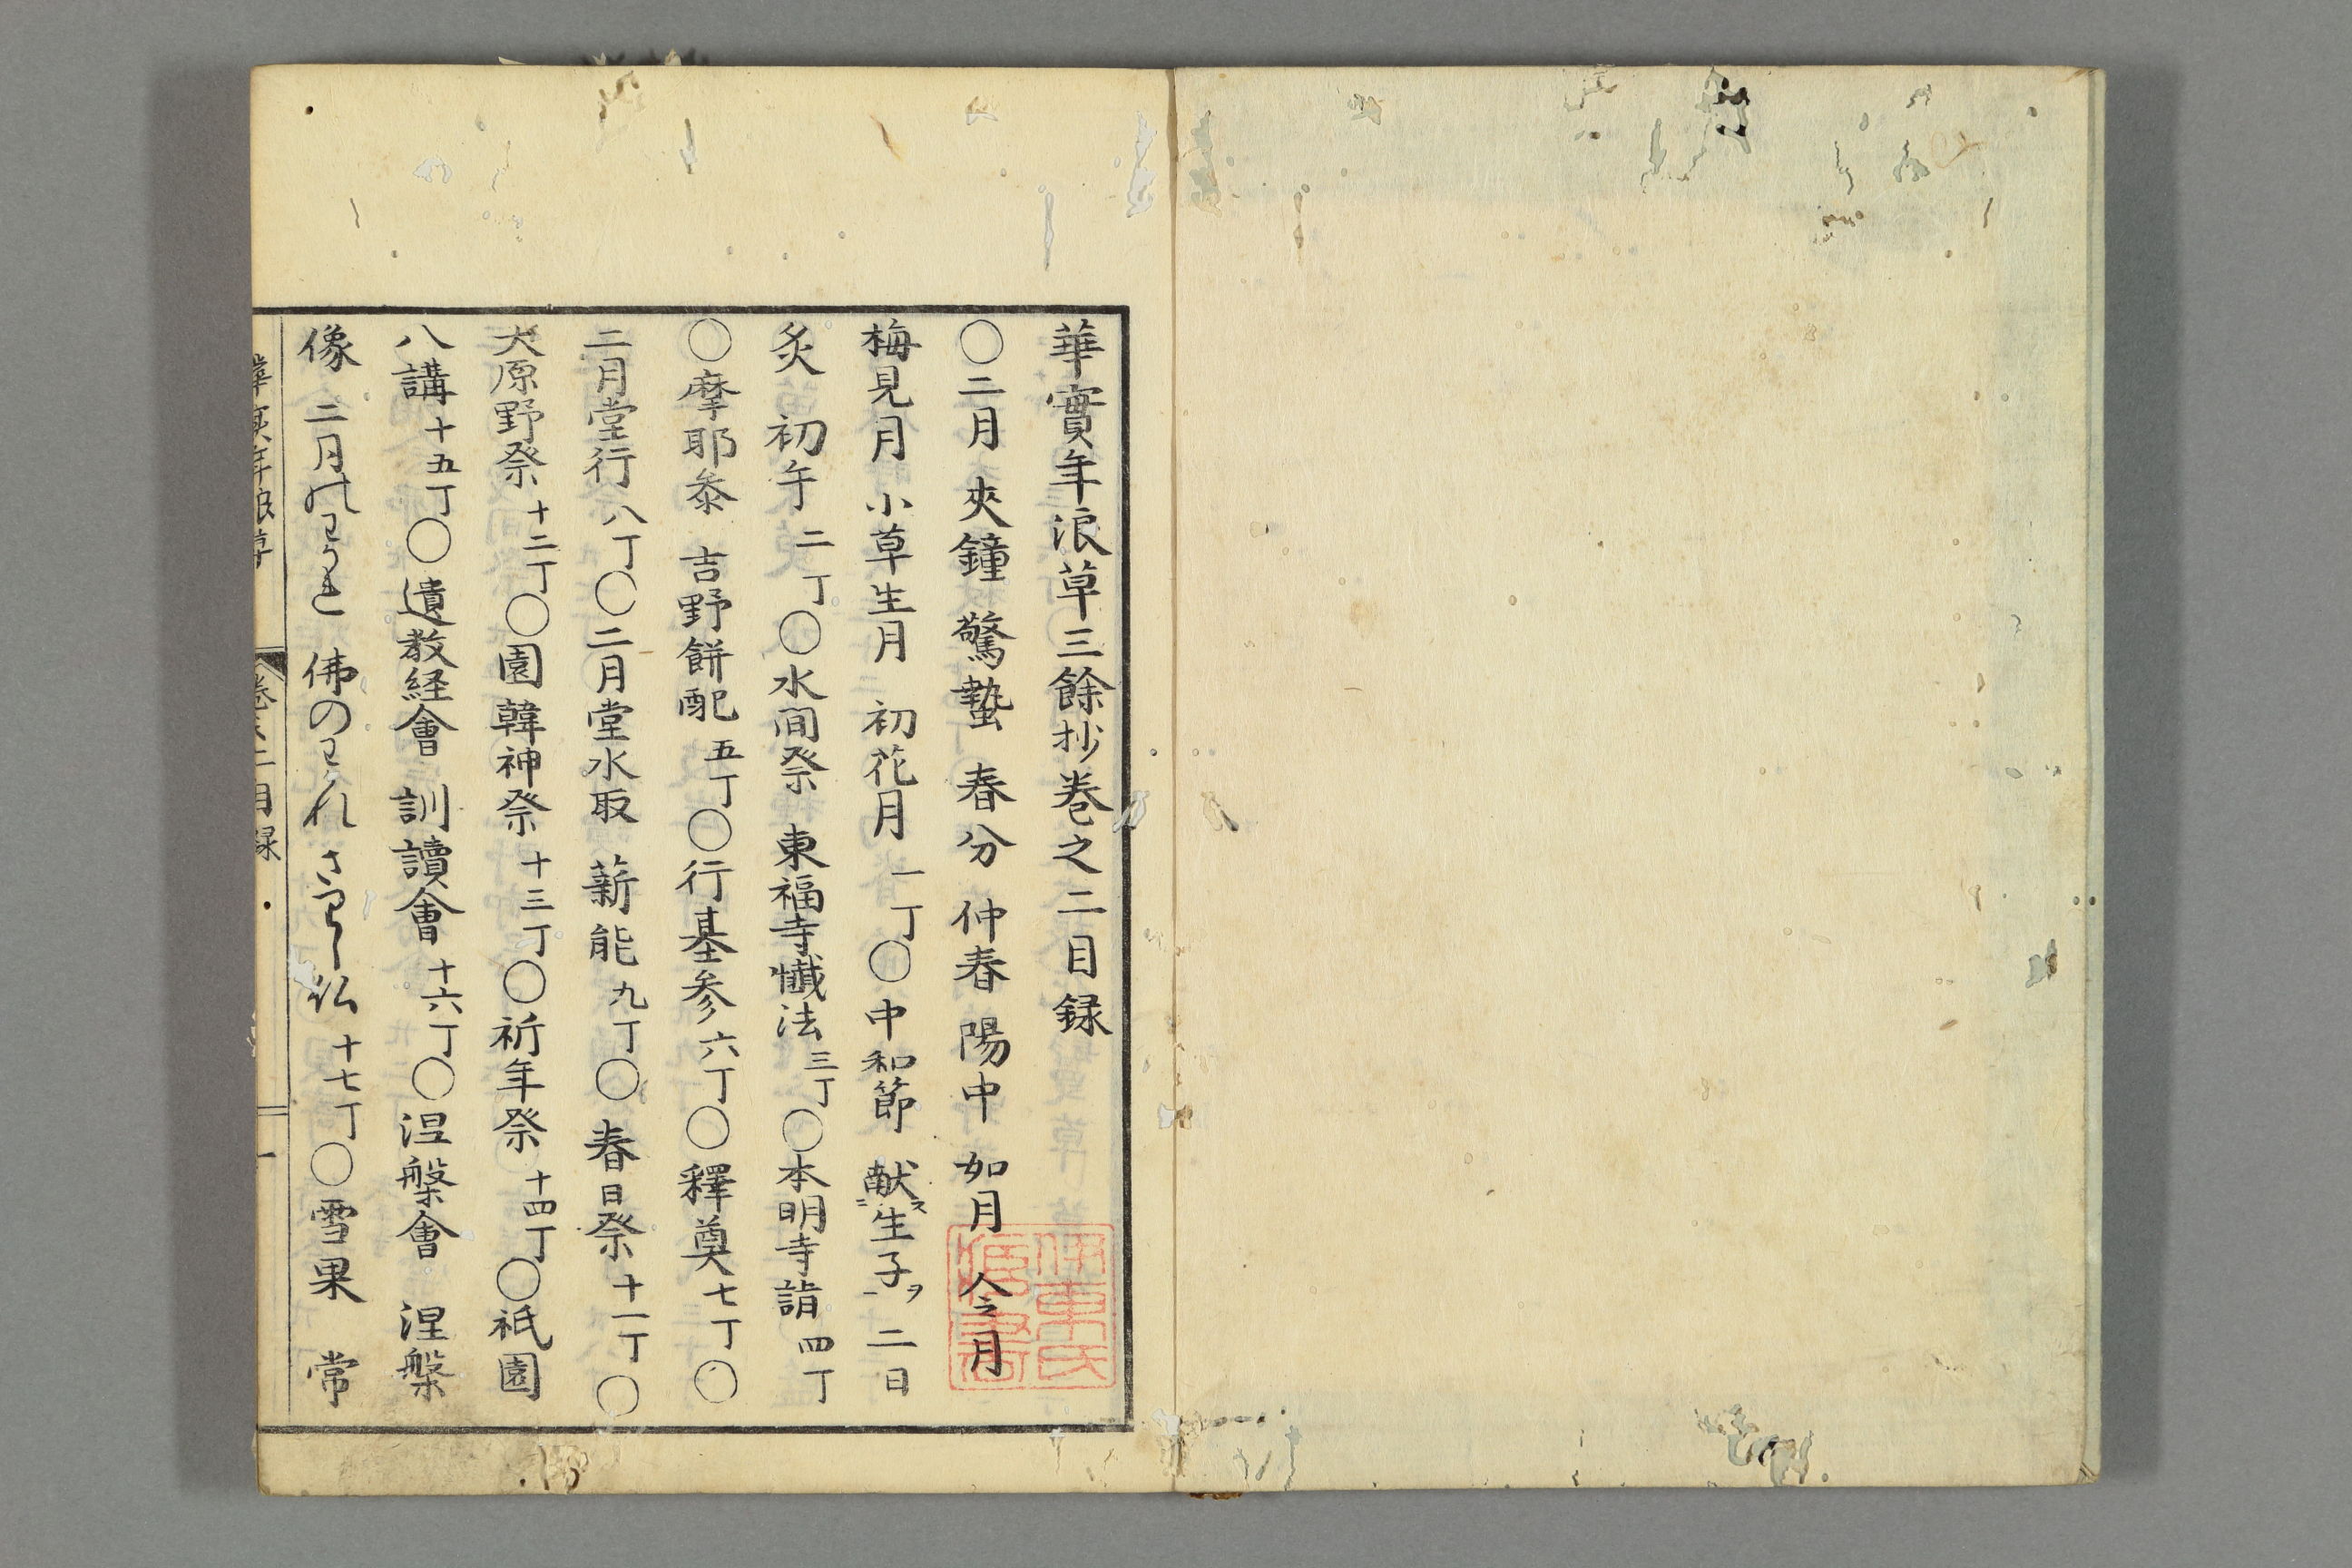 華實年浪草三餘抄巻之二目録
〇二月 夾鐘 驚蟄 春分 仲春 陽中 如月 令月
梅見月 小草生月 初花月 一丁〇中和節 献生子 二日
炙 初午 二丁〇水間祭 東福寺懺法 三丁〇本明寺詣 四丁
〇摩耶参 吉野餅配 五丁〇行基参 六丁〇釋奠 七丁〇
二月堂行 八丁〇二月堂水取 薪能 九丁〇春日祭 十一丁〇
大原野祭 十二丁〇園韓神祭 十三丁〇祈年祭 十四丁〇祇園
八講 十五丁〇遺教経會 訓讀會 十六丁〇涅槃會 涅槃
像 二月のわかれ 佛のわかれ 十七丁〇雪果 常
華實年浪草 巻之二目録 一
伊東氏